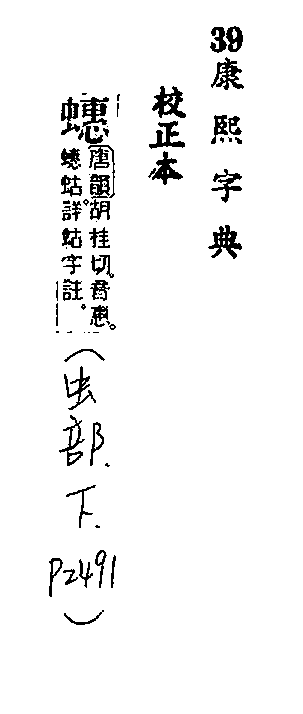 39康熙字典
校正本
蟪 唐韻胡桂切。音惠。
蟪蛄。詳蛄字註。
(虫部.下.P2491)